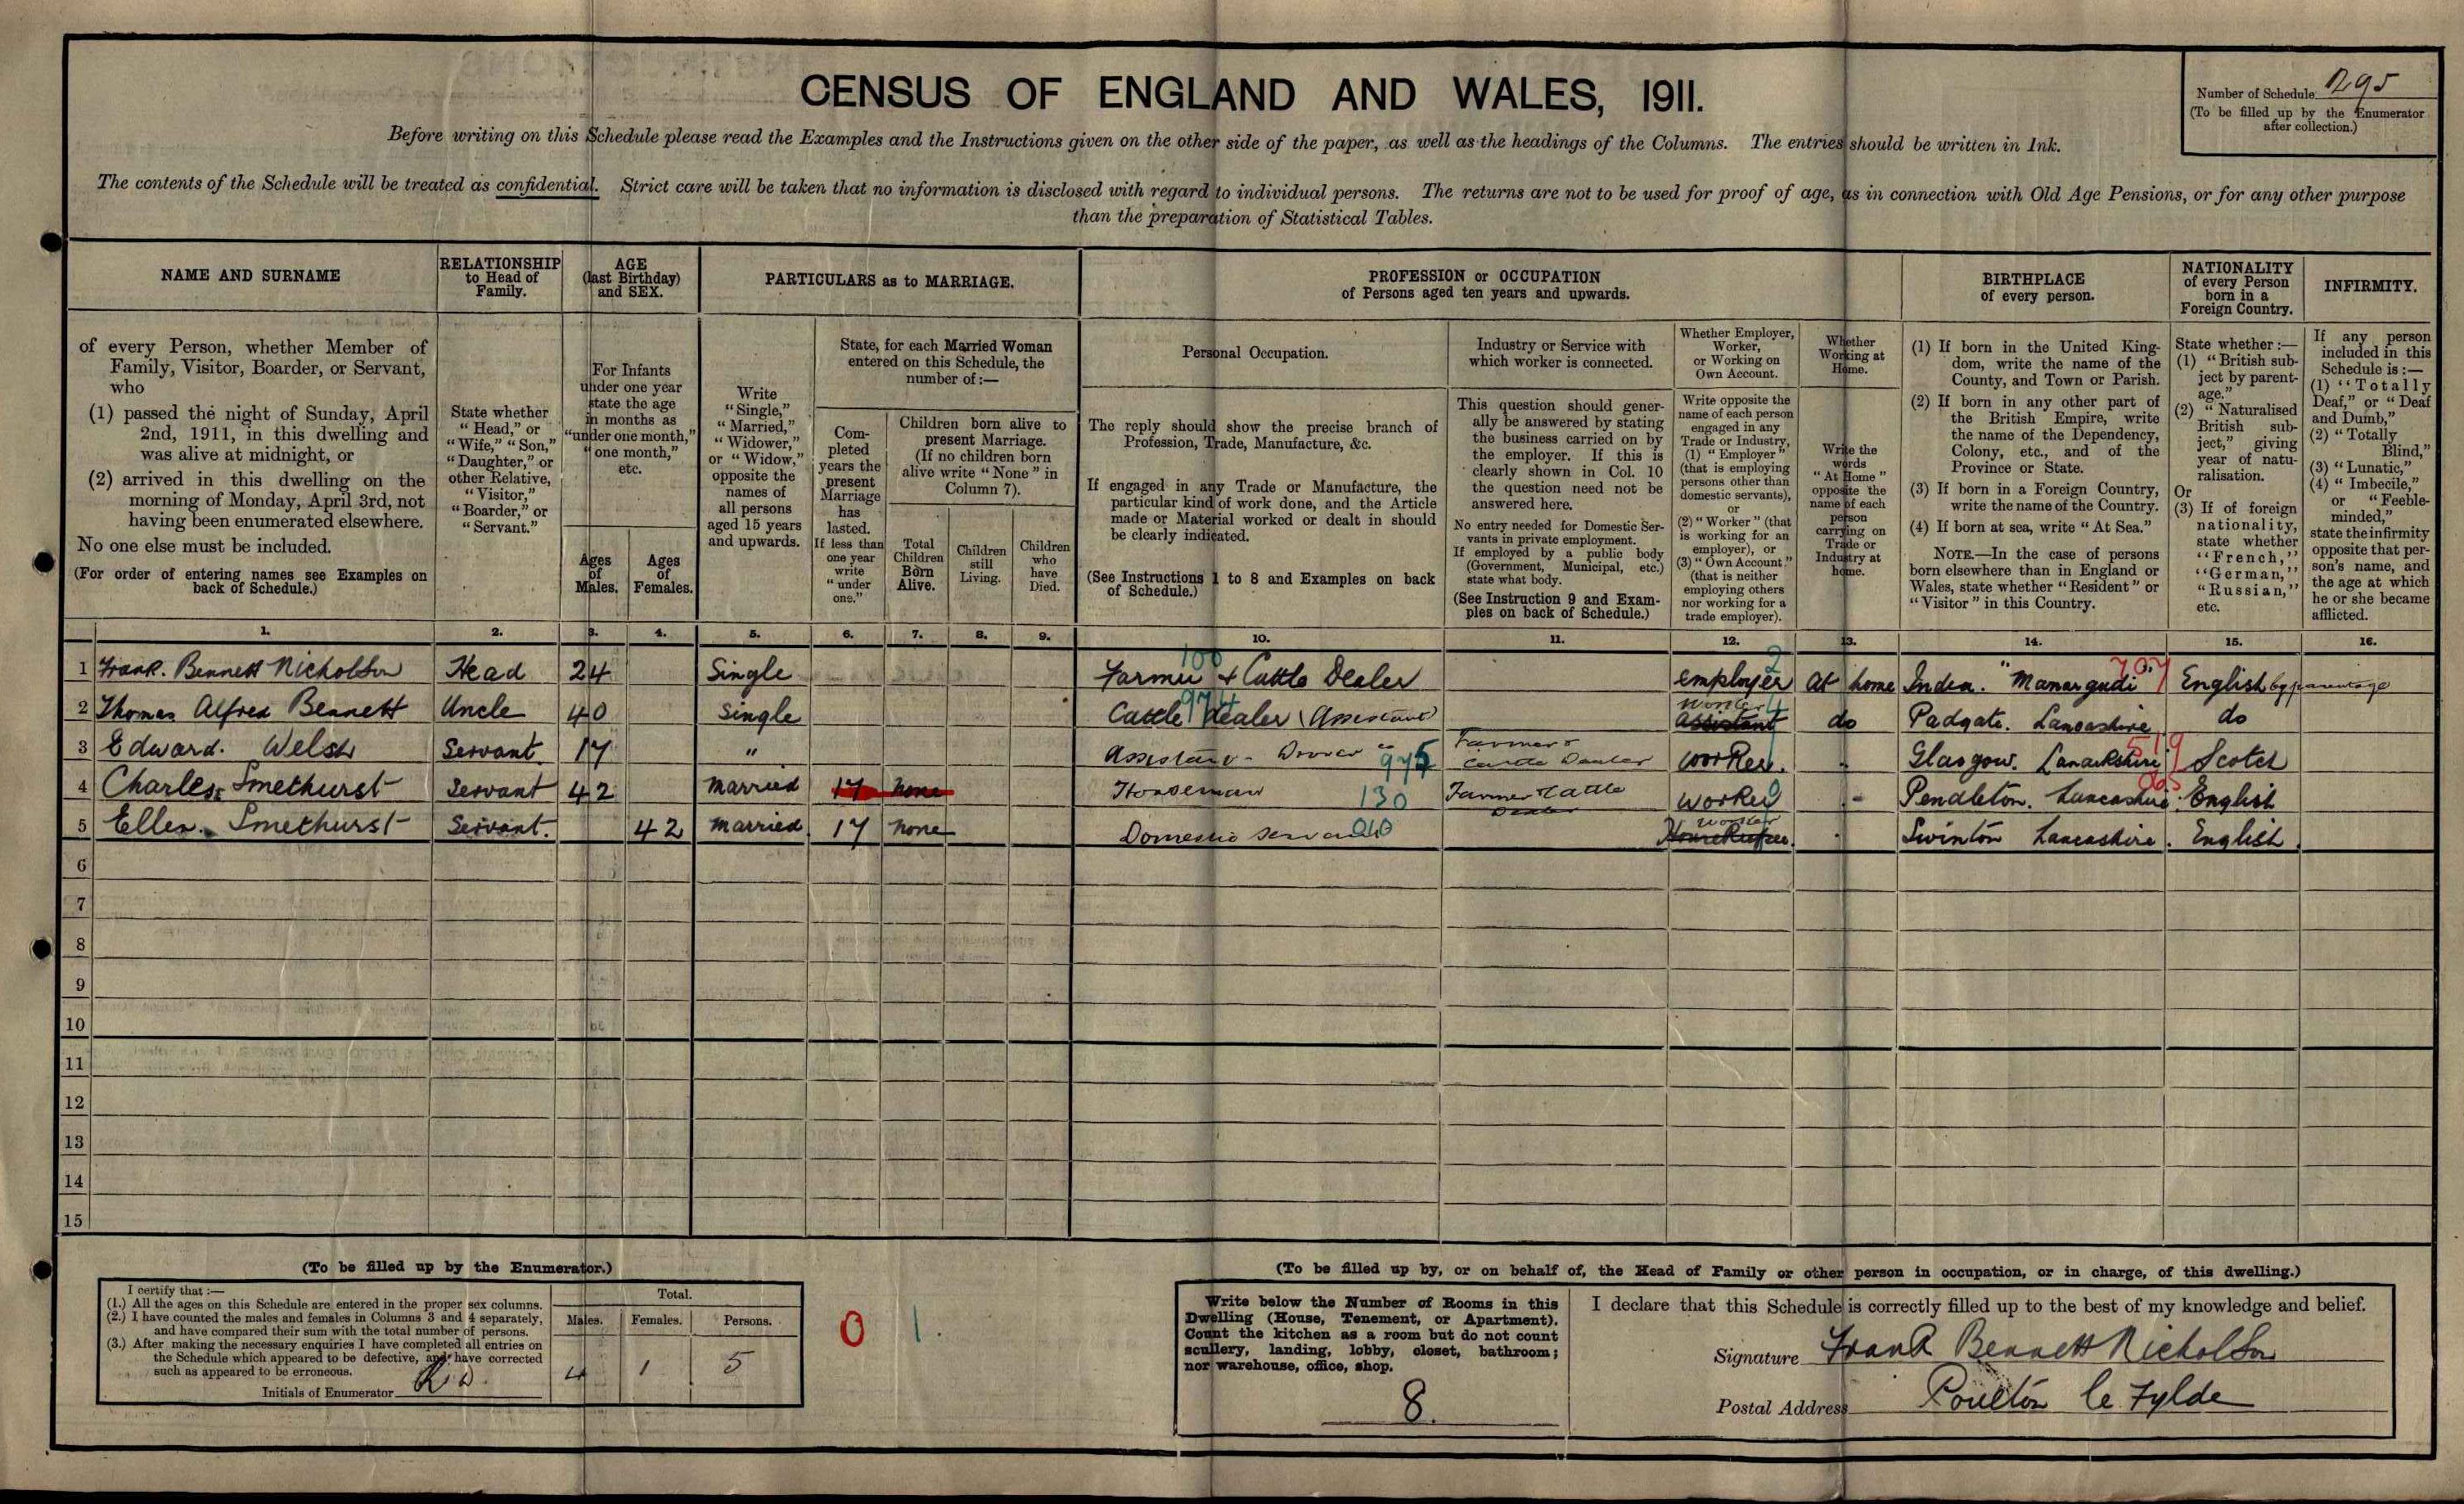 CENSUS OF ENGLAND AND WALES, 1911.
Number of Schedule 295
(To be filled up by the Enumerator
after collection.)
Before writing on this Schedule please read the Examples and the Instructions given on the other side of the paper, as well as the headings of the Columns. The entries should be written in Ink.
The contents of the Schedule will be treated as confidential. Strict care will be taken that no information is disclosed with regard to individual persons. The returns are not to be used for proof of age, as in connection with Old Age Pensions, or for any other purpose
than the preparation of Statistical Tables.
NAME AND SURNAME
of every Person, whether Member of
Family, Visitor, Boarder, or Servant,
who
(1) passed the night of Sunday, April
2nd, 1911, in this dwelling and
was alive at midnight, or
(2) arrived in this dwelling on the
morning of Monday, April 3rd, not
having been enumerated elsewhere.
No one else must be included.
(For order of entering names see Examples on
back of Schedule.)
RELATIONSHIP
to Head of
Family.
State whether
"Head," or
"Wife," "Son,"
"Daughter," or
other Relative,
"Visitor,"
"Boarder," or
"Servant."
AGE
(last Birthday)
and SEX.
For Infants
under one year
state the age
in months as
"under one month,"
"one month,"
etc.
Ages
of
Males.
Ages
of
Females.
PARTICULARS as to MARRIAGE.
Write
"Single,"
"Married,"
"Widower,"
or "Widow,"
opposite the
names of
all persons
aged 15 years
and upwards.
State, for each Married Woman
entered on this Schedule, the
number of:—
Com-
pleted
years the
present
Marriage
has
lasted.
If less than
one year
write
"under
one."
Children born alive to
present Marriage.
(If no children born
alive write "None" in
Column 7).
Total
Children
Born
Alive.
Children
still
Living.
Children
who
have
Died.
PROFESSION or OCCUPATION
of Persons aged ten years and upwards.
Personal Occupation.
The reply should show the precise branch of
Profession, Trade, Manufacture, &c.
If engaged in any Trade or Manufacture, the
particular kind of work done, and the Article
made or Material worked or dealt in should
be clearly indicated.
(See Instructions 1 to 8 and Examples on back
of Schedule.)
Industry or Service with
which worker is connected.
This question should gener-
ally be answered by stating
the business carried on by
the employer. If this is
clearly shown in Col. 10
the question need not be
answered here.
No entry needed for Domestic Ser-
vants in private employment.
If employed by a public body
(Government, Municipal, etc.)
state what body.
(See Instruction 9 and Exam-
ples on back of Schedule.)
Whether Employer,
Worker,
or Working on
Own Account.
Write opposite the
name of each person
engaged in any
Trade or Industry,
(1) "Employer"
(that is employing
persons other than
domestic servants),
or
(2) "Worker" (that
is working for an
employer), or
(3) "Own Account"
(that is neither
employing others
nor working for a
trade employer).
Whether
Working at
Home.
Write the
words
"At Home"
opposite the
name of each
person
carrying on
Trade or
Industry at
home.
BIRTHPLACE
of every person.
(1) If born in the United King-
dom, write the name of the
County, and Town or Parish.
(2) If born in any other part of
the British Empire, write
the name of the Dependency,
Colony, etc., and of the
Province or State.
(3) If born in a Foreign Country,
write the name of the Country.
(4) If born at sea, write "At Sea."
NOTE.—In the case of persons
born elsewhere than in England or
Wales, state whether "Resident" or
"Visitor" in this Country.
NATIONALITY
of every Person
born in a
Foreign Country.
State whether:—
(1) "British sub-
ject by parent-
age."
(2) "Naturalised
British sub-
ject," giving
year of natu-
ralisation.
Or
(3) If of foreign
nationality,
state whether
"French,"
"German,"
"Russian,"
etc.
INFIRMITY.
If any person
included in this
Schedule is:—
(1) "Totally
Deaf," or "Deaf
and Dumb,"
(2) "Totally
Blind,"
(3) "Lunatic,"
(4) "Imbecile,"
or "Feeble-
minded,"
state the infirmity
opposite that per-
son's name, and
the age at which
he or she became
afflicted.
1. 2. 3. 4. 5. 6. 7. 8. 9. 10. 11. 12. 13. 14. 15. 16.
1 Frank. Bennett Nicholson Head 24 Single Farmer & Cattle Dealer 100 employer 2 At home India. "Manargudi" 707 English by parentage
2 Thomas Alfred Bennett Uncle 40 Single Cattle Dealer (Assistant) 974 Assistant Worker do Padgate. Lancashire do
3 Edward. Welsh Servant. 17 " Assistant - Drover 975 Farmer & Cattle Dealer Worker. " Glasgow. Lanarkshire 519 Scotch
4 Charles Smethurst Servant 42 Married 17 None Horseman 130 Farmer Cattle Dealer Worker - Pendleton. Lancashire English
5 Ellen. Smethurst Servant. 42 Married 17 None Domestic Servant 040 Housekeeper Worker Swinton Lancashire. English
6
7
8
9
10
11
12
13
14
15
(To be filled up by the Enumerator.)
I certify that:—
(1.) All the ages on this Schedule are entered in the proper sex columns.
(2.) I have counted the males and females in Columns 3 and 4 separately,
and have compared their sum with the total number of persons.
(3.) After making the necessary enquiries I have completed all entries on
the Schedule which appeared to be defective, and have corrected
such as appeared to be erroneous.
Initials of Enumerator
Total.
Males. Females. Persons.
4 1 5
0 1.
(To be filled up by, or on behalf of, the Head of Family or other person in occupation, or in charge, of this dwelling.)
Write below the Number of Rooms in this
Dwelling (House, Tenement, or Apartment).
Count the kitchen as a room but do not count
scullery, landing, lobby, closet, bathroom;
nor warehouse, office, shop.
8.
I declare that this Schedule is correctly filled up to the best of my knowledge and belief.
Signature Frank Bennett Nicholson
Postal Address Poulton le Fylde